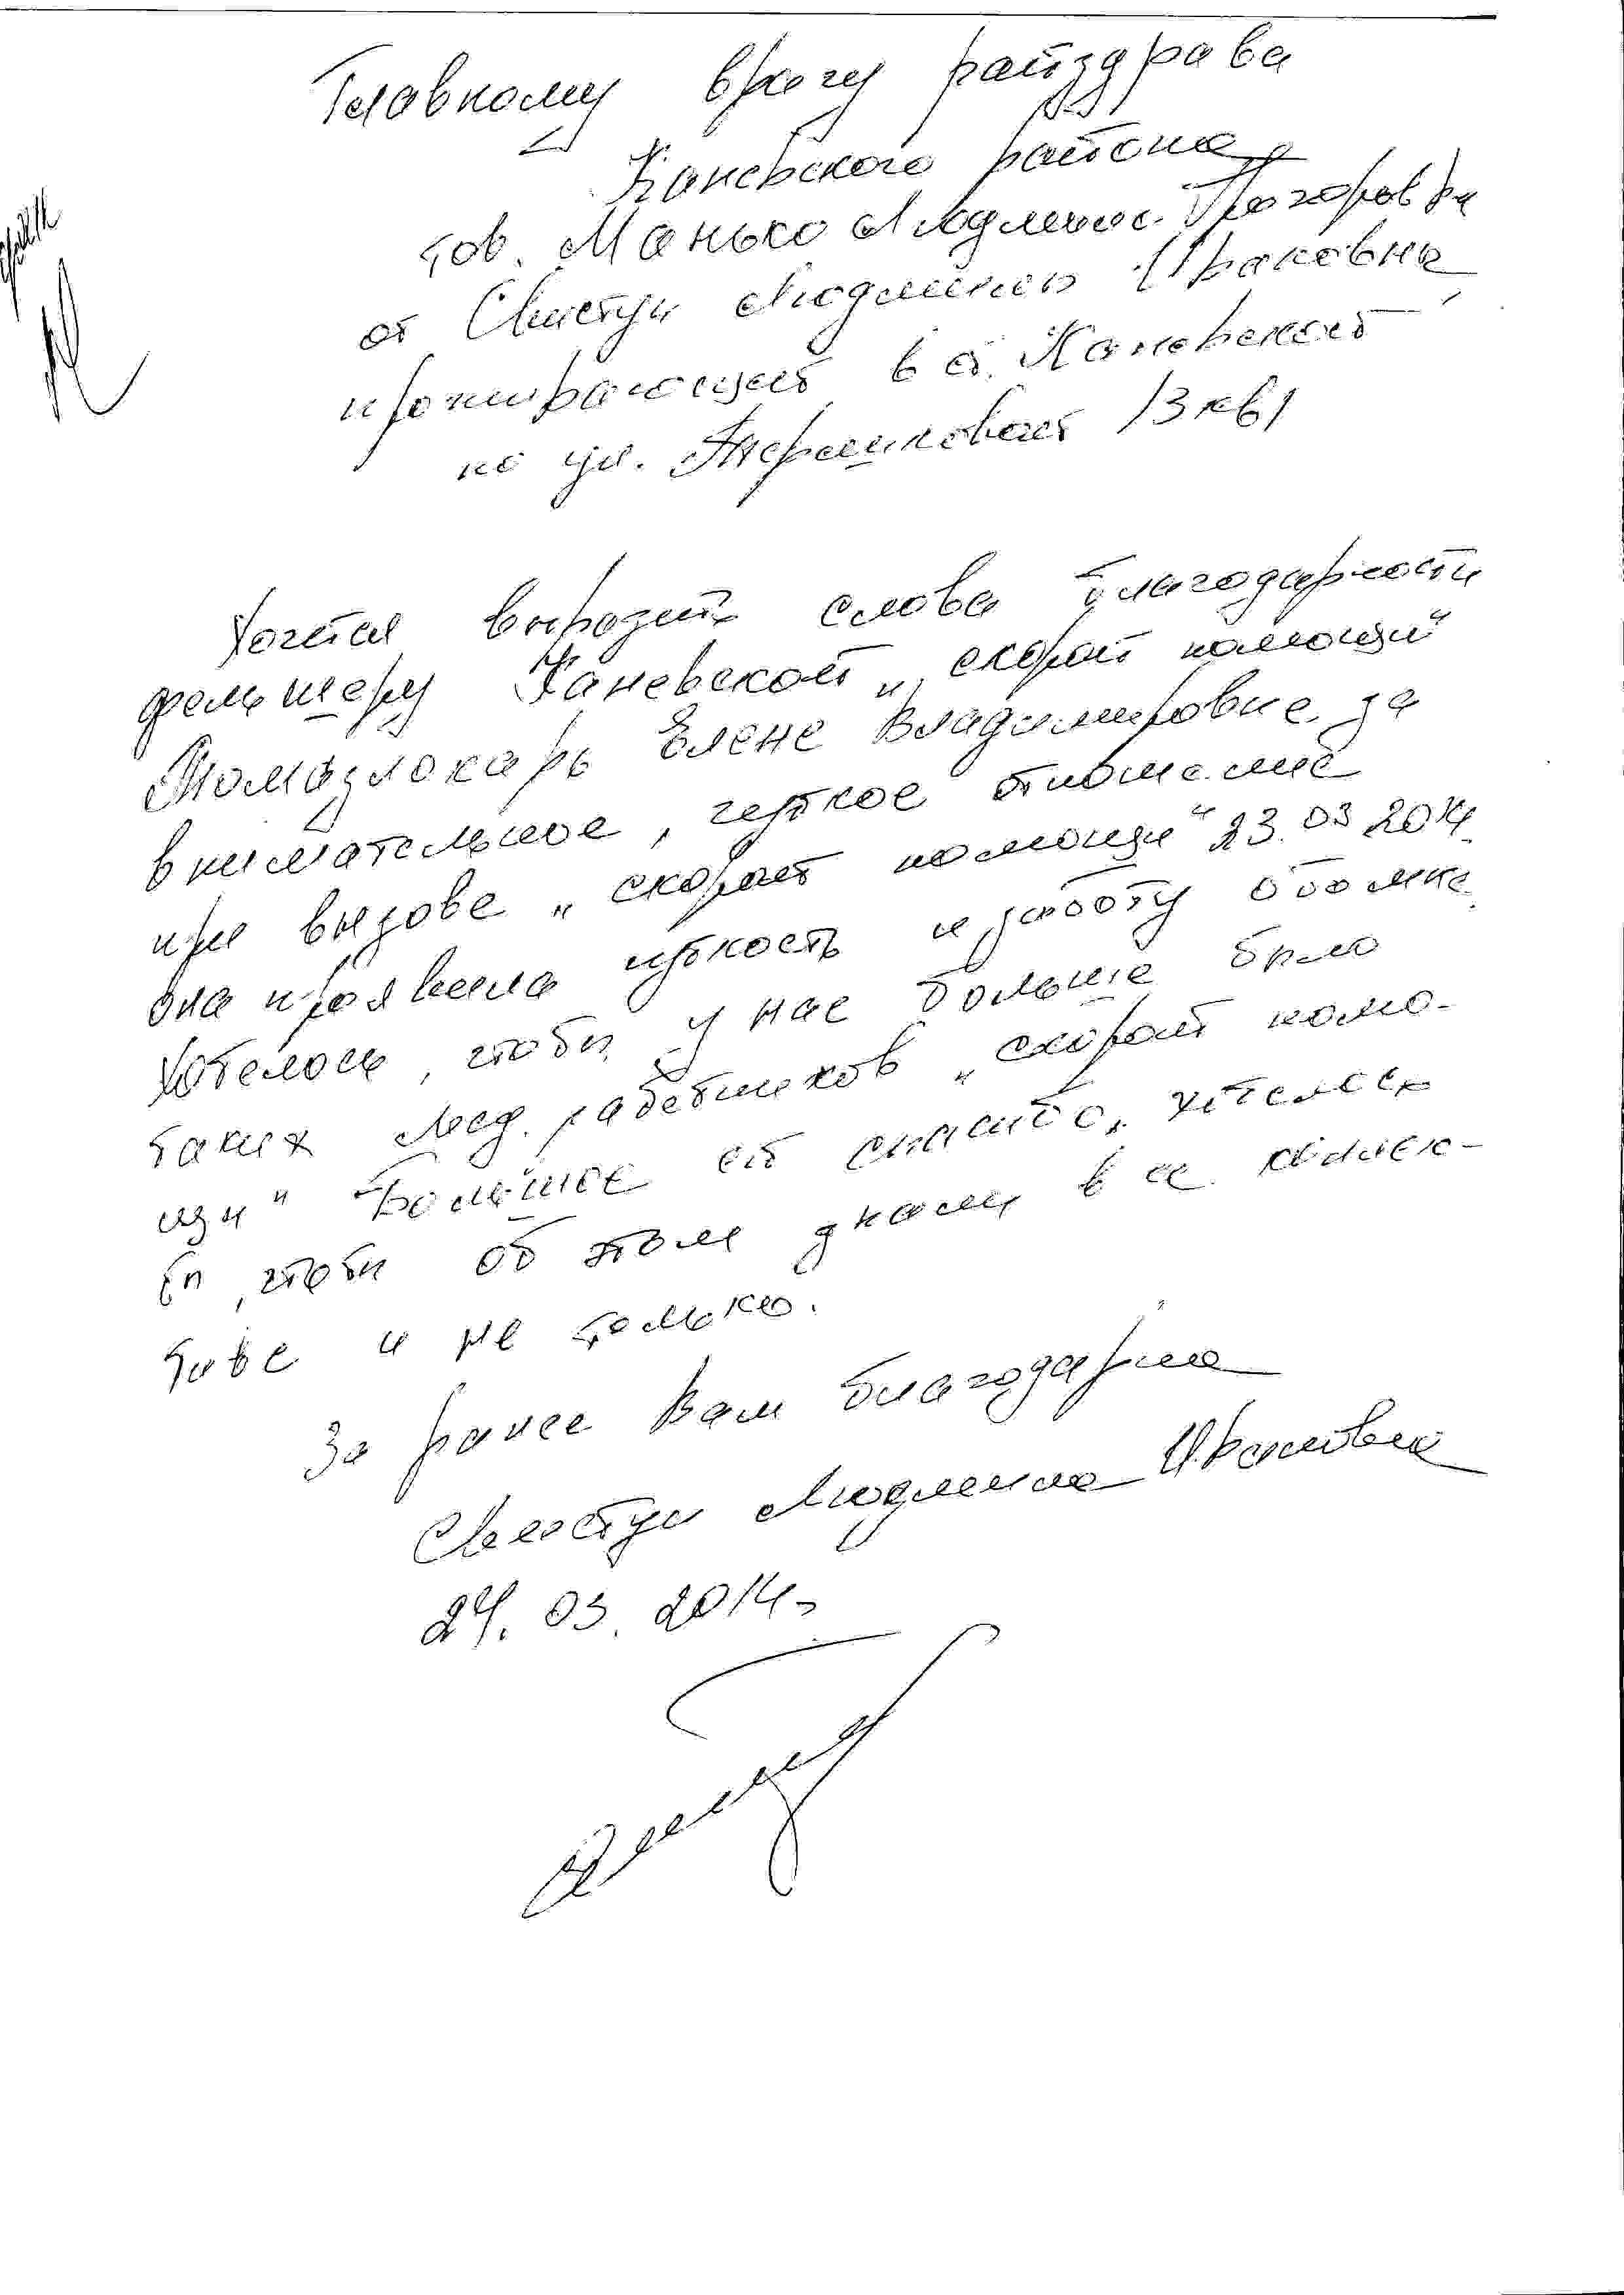 Главному врачу райздрава
Каневского района
тов. Манько Людмиле
от Свистун Людмилы Ивановны
проживающей в ст. Каневской
по ул. 13 кв 1
Хочется выразить слова благодарности
фельдшеру Каневской „скорой помощи"
Елене Владимировне за
внимательное, чуткое отношение
при вызове „скорой помощи" 23.03 2014.
она проявила чуткость и заботу обо мне.
Хотелось, чтобы у нас больше было
таких мед. работников „скорой помо-
щи" Большое ей спасибо, хотелось
бы, чтобы об этом знали в ее коллек-
тиве и не только.
За ранее Вам благодарна
Свистун Людмила Ивановна
24. 03. 2014г